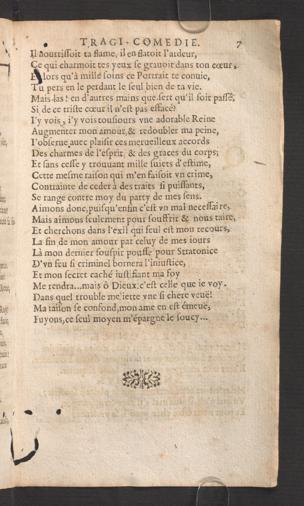 TRAGI-COMEDIE. 7
Il nourrissoit ta flame, il en flatoit l'ardeur,
Ce qui charmoit tes yeux se grauoit dans ton cœur,
Et lors qu'à mille soins ce Portrait te conuie,
Tu pers en le perdant le seul bien de ta vie.
Mais las! en d'autres mains que sert qu'il soit passé,
Si de ce triste cœur il n'est pas effacé?
I'y vois, i'y vois tousiours vne adorable Reine
Augmenter mon amour, & redoubler ma peine,
I'obserue auec plaisir ces merueilleux accords
Des charmes de l'esprit, & des graces du corps;
Et sans cesse y trouuant mille suiets d'estime,
Cette mesme raison qui m'en faisoit vn crime,
Contrainte de ceder à des traits si puissants,
Se range contre moy du party de mes sens.
Aimons donc, puisqu'enfin c'est vn mal necessaire,
Mais aimons seulement pour souffrir & nous taire,
Et cherchons dans l'exil qui seul est mon recours,
La fin de mon amour par celuy de mes iours
Là mon dernier souspir poussé pour Stratonice
D'vn feu si criminel bornera l'iniustice,
Et mon secret caché iustifiant ma foy
Me rendra...mais ô Dieux, c'est celle que ie voy.
Dans quel trouble me iette vne si chere veuë!
Ma raison se confond, mon ame en est émeuë,
Fuyons, ce seul moyen m'épargne le soucy...